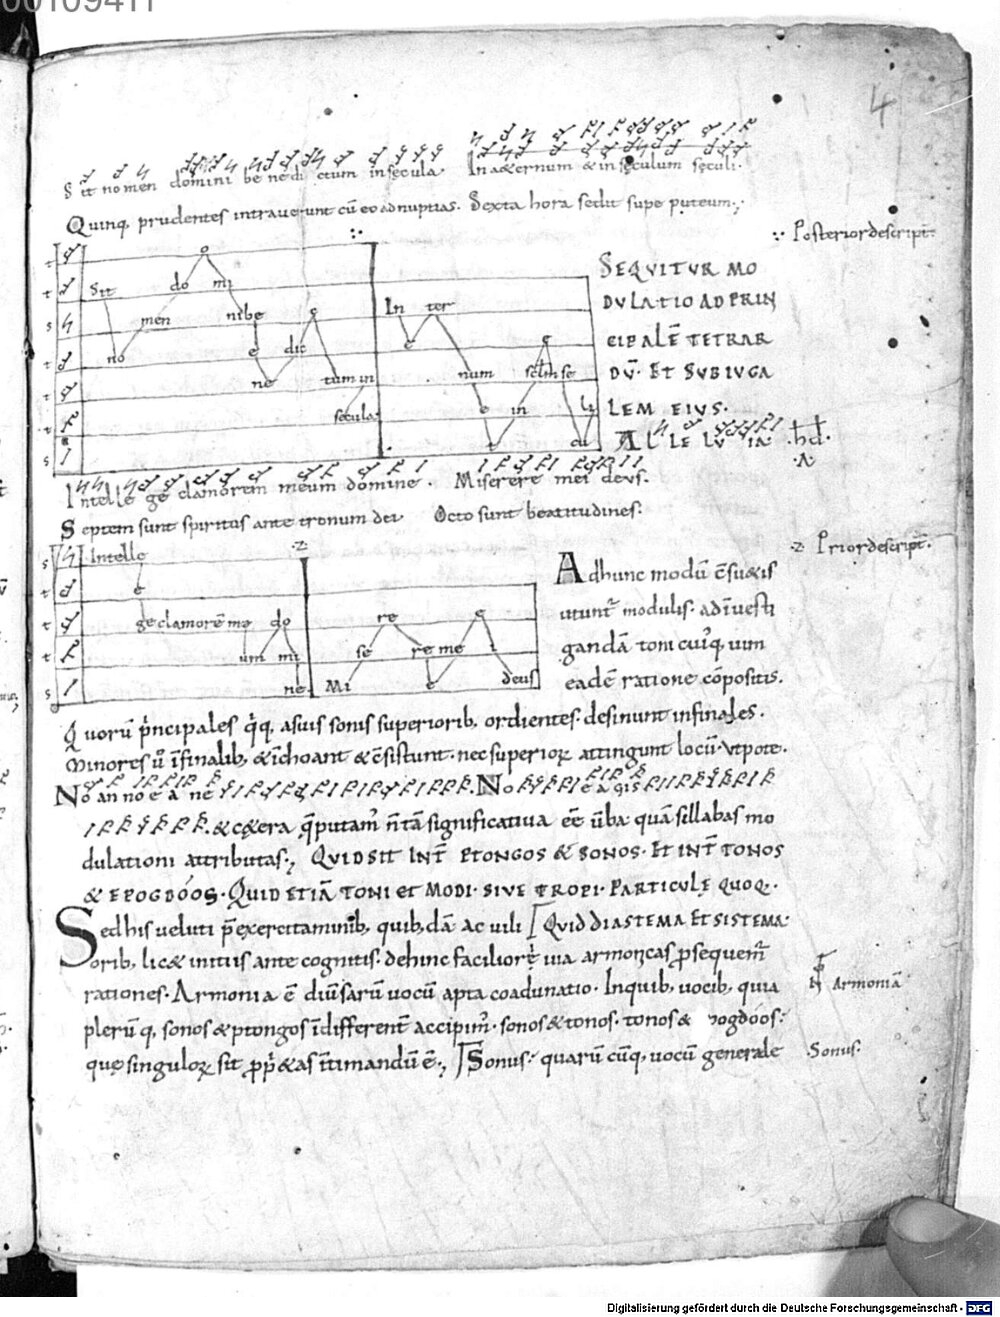 00109411
4
Sit nomen domini benedictum in secula. In aeternum & in seculum seculi.
Quinq, prudentes intraverunt cū eo ad nuptias. Sexta hora sedit supe puteum.
Posterior descript
Sit no men do mi ni be e ne dic tum in secula
In e ter num e in sclm se cu li
SEQVITVR MO
DVLATIO AD PRIN
CIPALĒ TETRAR
DV̄. ET SVBIVGA
LEM EIVS.
AL LE LV IA
Intellege clamorem meum domine. Miserere mei deus.
Septem sunt spiritus ante tronum dei Octo sunt beatitudines.
Prior descript.
Intelle e ge clamorē me um do mi ne
Mi se re re me e i deus
Adhunc modū
utunt modulis. ad īvesti
gandā toni cuiq, uim
eadē ratione cōpositis.
Quorū principales qiq, a suis sonis superiorib, ordientes. desinunt in finales.
Minores ū ī finalib, & īchoant & cōsistunt. nec superior attingunt locū. Vtpote.
No an no e a ne No e a gis
& cetera q̄ putam n̄ tā significativa ēē ūba quā sillabas mo
dulationi attributas. QVID SIT INT PTONGOS & SONOS. ET INT TONOS
& EPOGDOOS. QVID ETIĀ TONI ET MODI. SIVE TROPI. PARTICVLE QVOQ.
Sed his veluti p̄exercitaminib, quib,dā ac uili QVID DIASTEMA ET SISTEMA
orib, lic& initiis ante cognitis. dehinc faciliore via armonicas psequem
rationes. Armonia ē divsarū vocū apta coadunatio. Inquib, vocib, quia
Armoniā
plerūq, sonos & ptongos īdifferent accipim. sonos & tonos. tonos & ogdoos.
que singulor sit &as ē. Sonus. quarū cūq, vocū generale
Sonus.
Digitalisierung gefördert durch die Deutsche Forschungsgemeinschaft - DFG